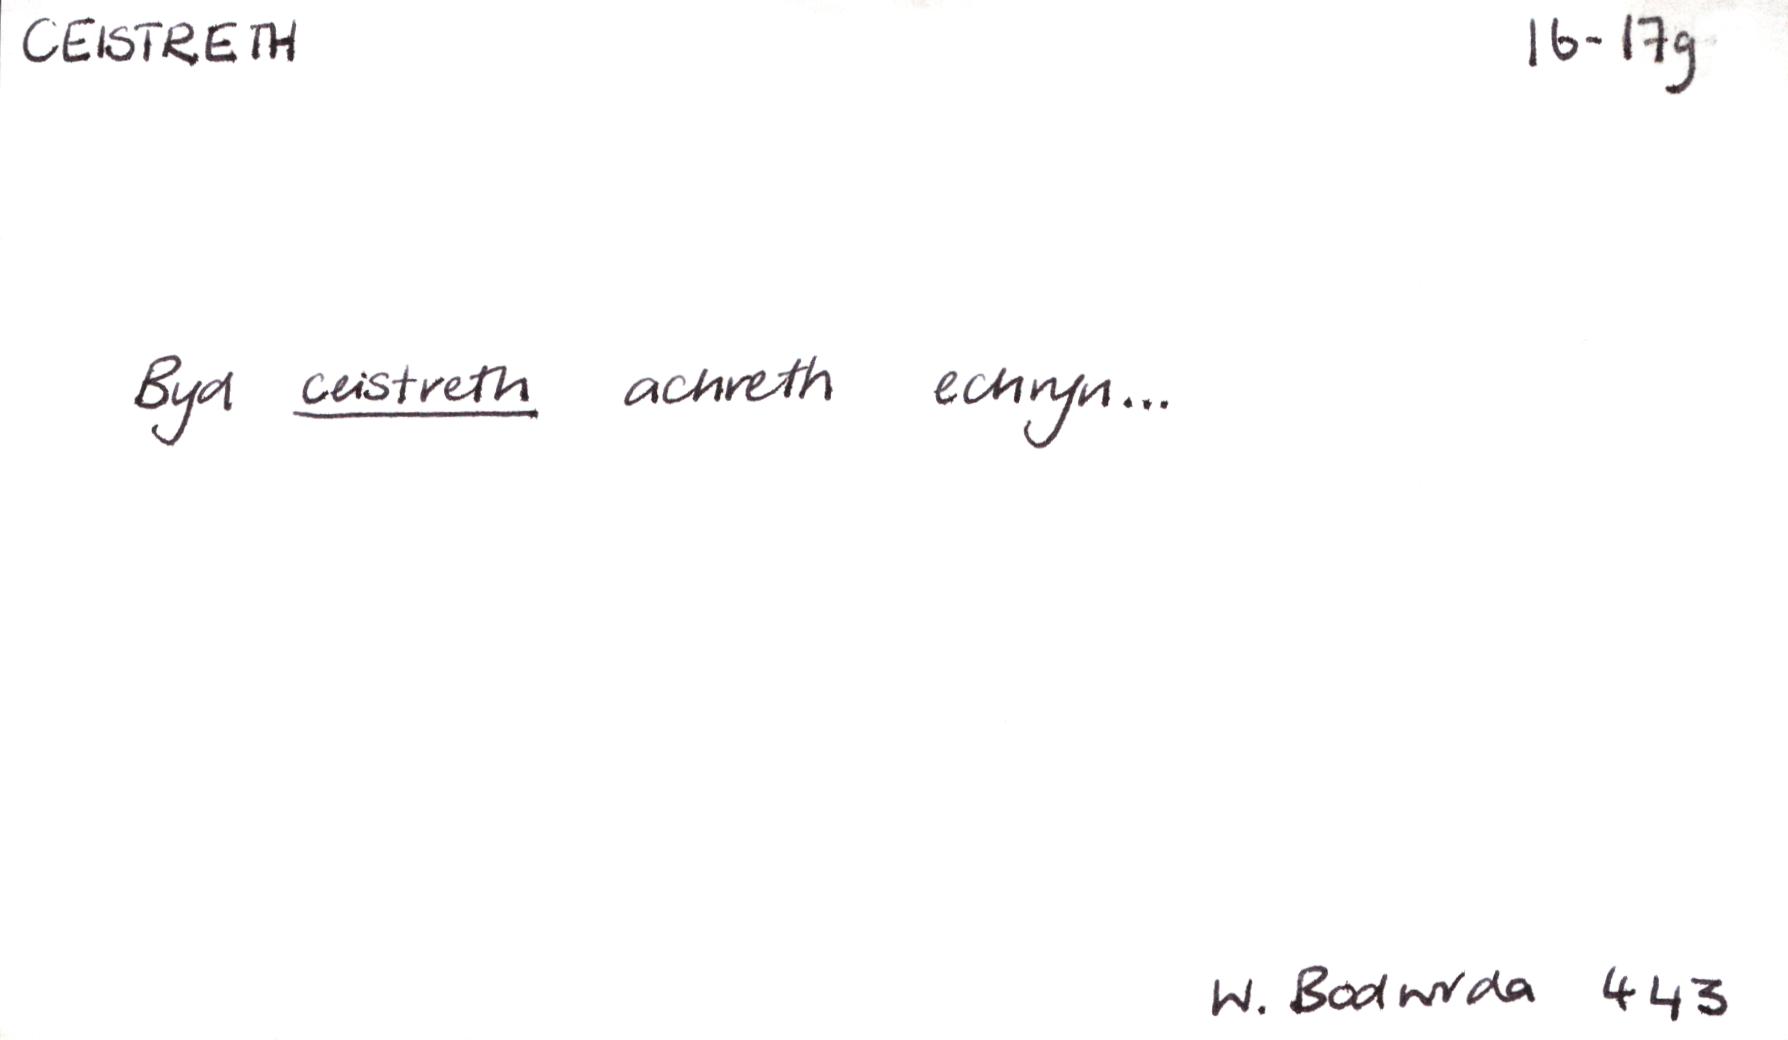 CEISTRETH 16-17g
Byd ceistreth achreth echryn...
W. Bodwrda 443